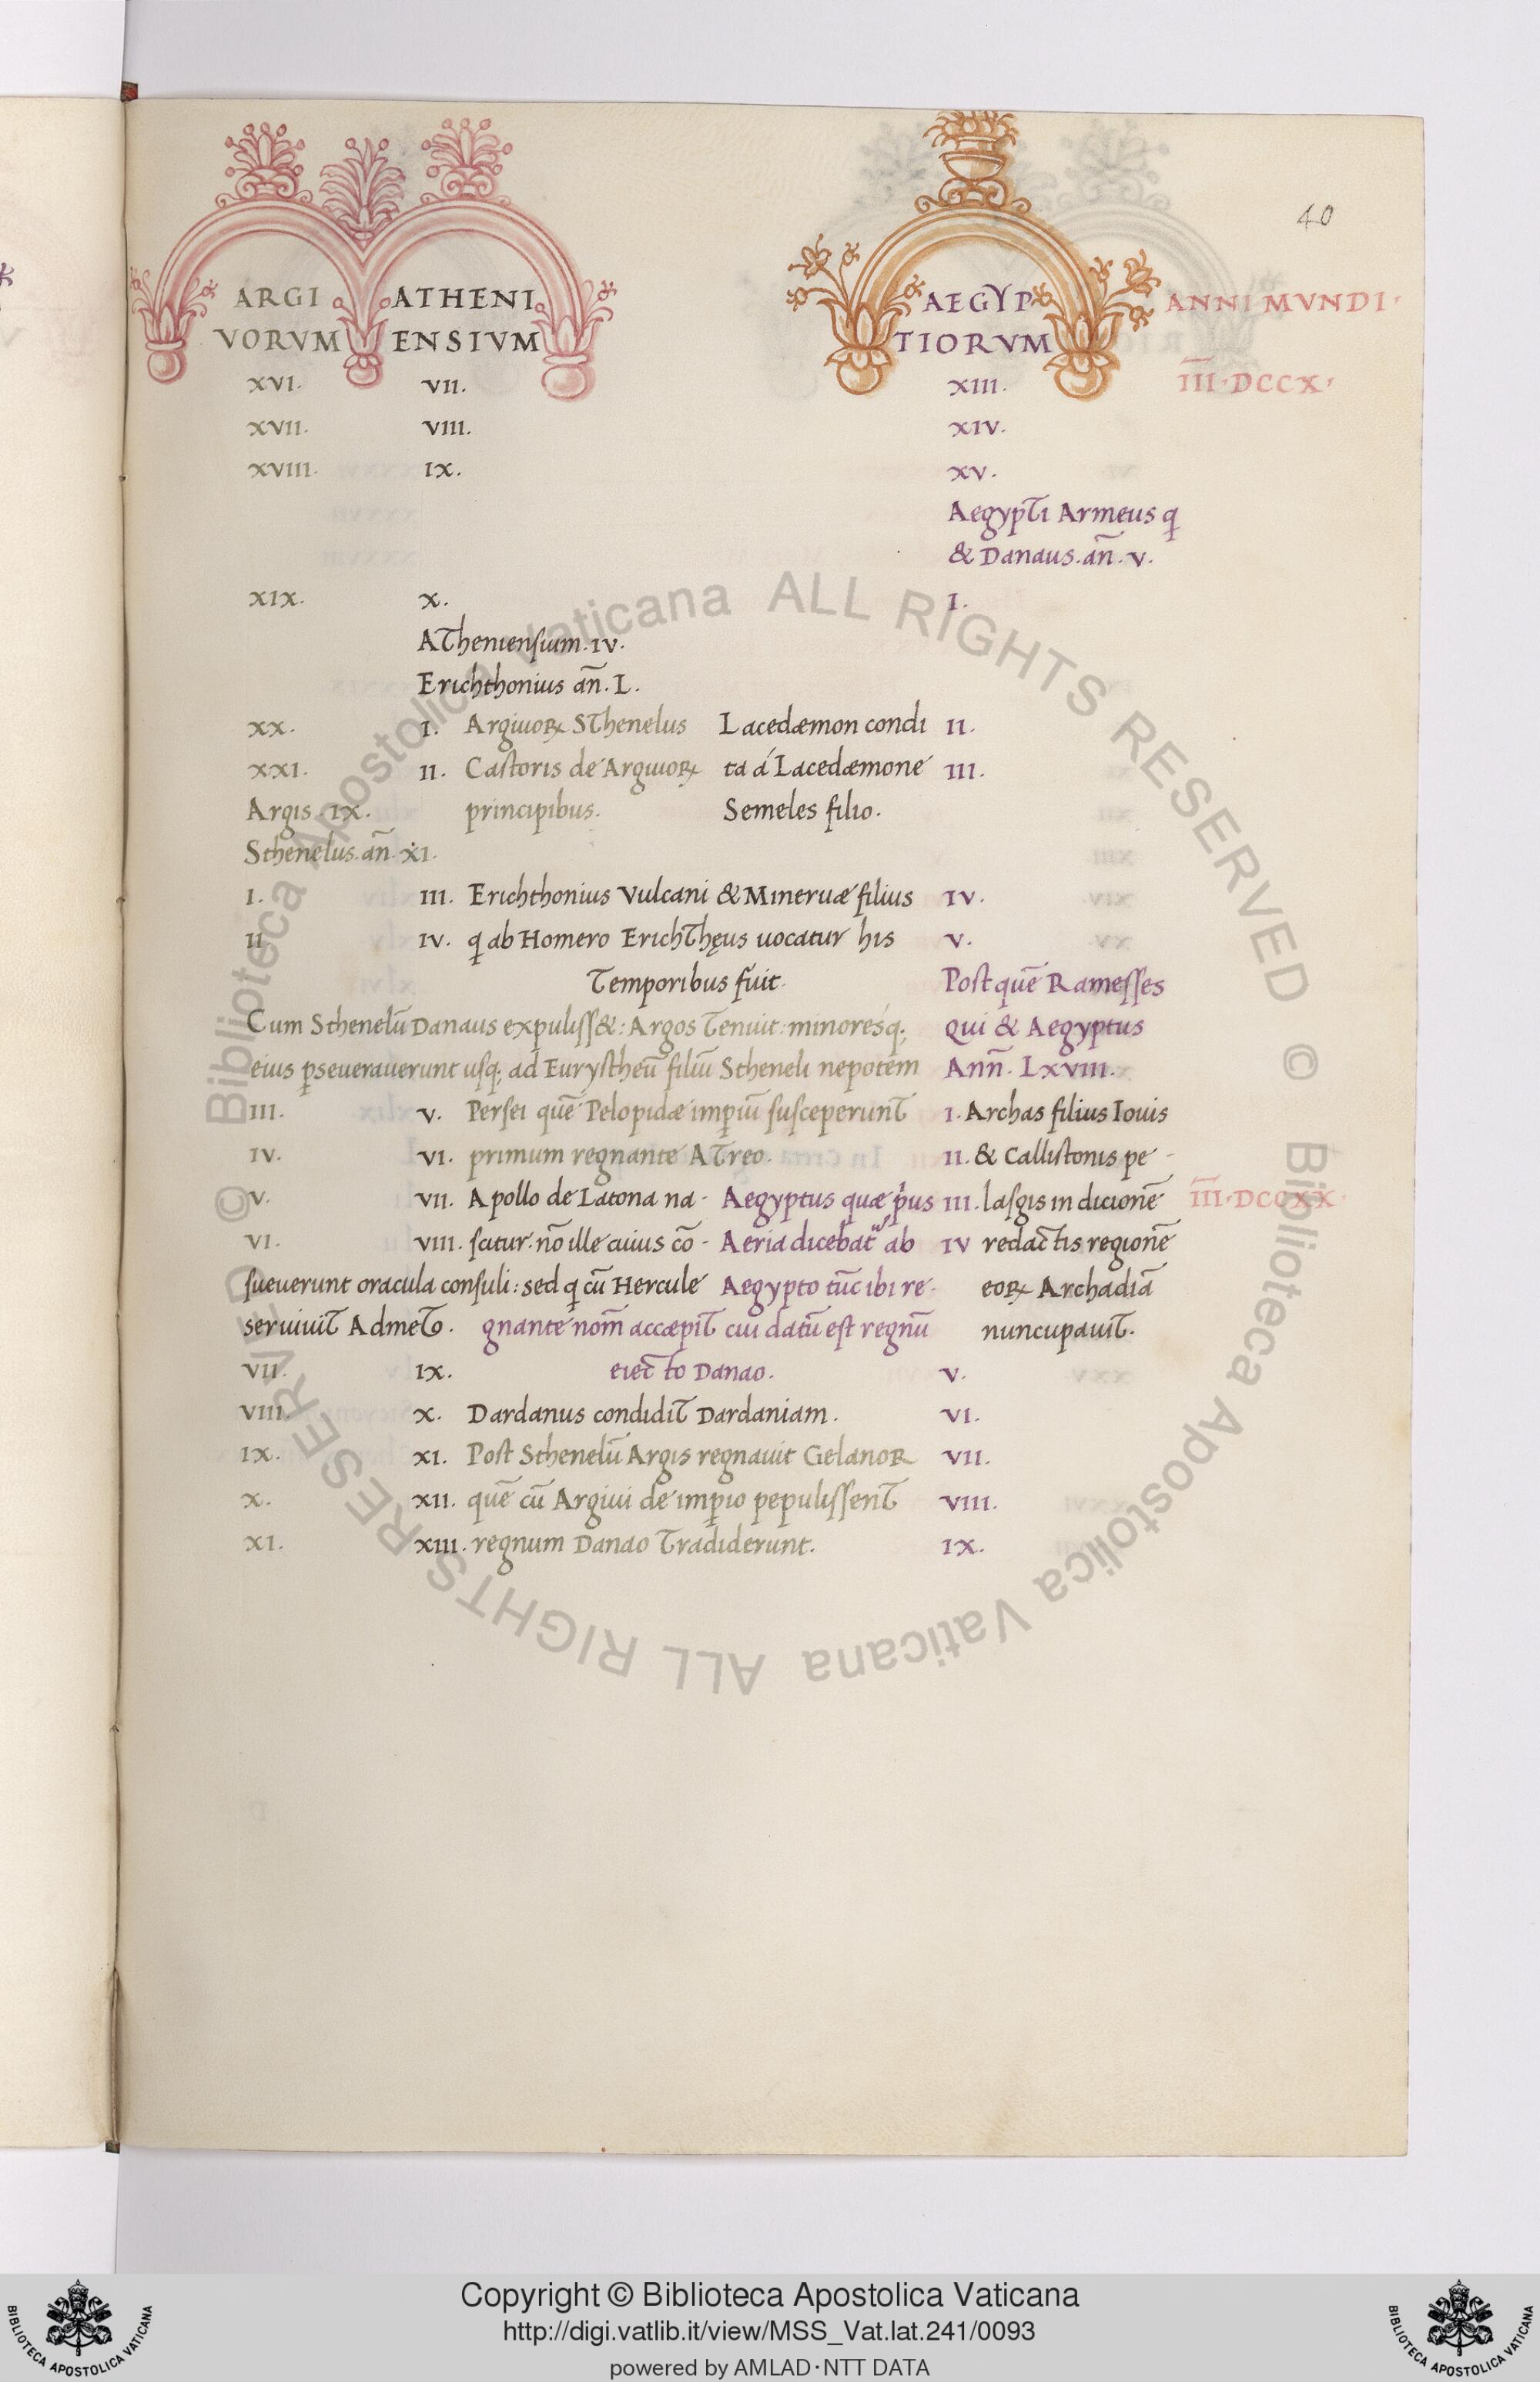 40
ARGI ATHENI AEGYP ANNI MVNDI·
VORVM ENSIVM TIORVM
XVI. VII. XIII. I̅I̅I̅·DCCX·
XVII. VIII. XIV.
XVIII. IX. XV.
Aegypti Armeus q
& Danaus. an̄. V.
XIX. X. I.
Atheniensium. IV.
Erichthonius an̄. L.
XX. I. Argiuoꝝ Sthenelus Lacedæmon condi II.
XXI. II. Castoris de Argiuoꝝ ta á Lacedæmone III.
Argis. IX. principibus. Semeles filio.
Sthenelus. an̄. XI.
I. III. Erichthonius Vulcani & Mineruæ filius IV.
II IV. q ab Homero Erichthęus uocatur his V.
Temporibus fuit. Post quē Ramesses
Cum Sthenelū Danaus expuliss&: Argos tenuit: minoresq; Qui & Aegyptus
eius ꝑseuerauerunt usq; ad Eurystheū filiū Stheneli nepotem Ann̄. LXVIII.
III. V. Persei quē Pelopidæ imꝑiū susceperunt I. Archas filius Iouis
IV. VI. primum regnante Atreo. II. & Callistonis pe-
V. VII. Apollo de Latona na- Aegyptus quæ pⁱus III. lasgis in dicionē I̅I̅I̅·DCCXX·
VI. VIII. scitur. nō ille cuius cō- Aeria dicebat᷑ ab IV redactis regionē
sueuerunt oracula consuli: sed q cū Hercule Aegypto tūc ibi re- eoꝝ Archadiā
seruiuit Admeto. gnante nom̄ accæpit cui datū est regnū nuncupauit.
VII. IX. eiecto Danao. V.
VIII. X. Dardanus condidit Dardaniam. VI.
IX. XI. Post Sthenelū Argis regnauit Gelanor VII.
X. XII. quē cū Argiui de imꝑio pepulissent VIII.
XI. XIII. regnum Danao tradiderunt. IX.
© Biblioteca Apostolica Vaticana ALL RIGHTS RESERVED © Biblioteca Apostolica Vaticana ALL RIGHTS RESERVED
Copyright © Biblioteca Apostolica Vaticana
http://digi.vatlib.it/view/MSS_Vat.lat.241/0093
powered by AMLAD·NTT DATA
BIBLIOTECA APOSTOLICA VATICANA
BIBLIOTECA APOSTOLICA VATICANA